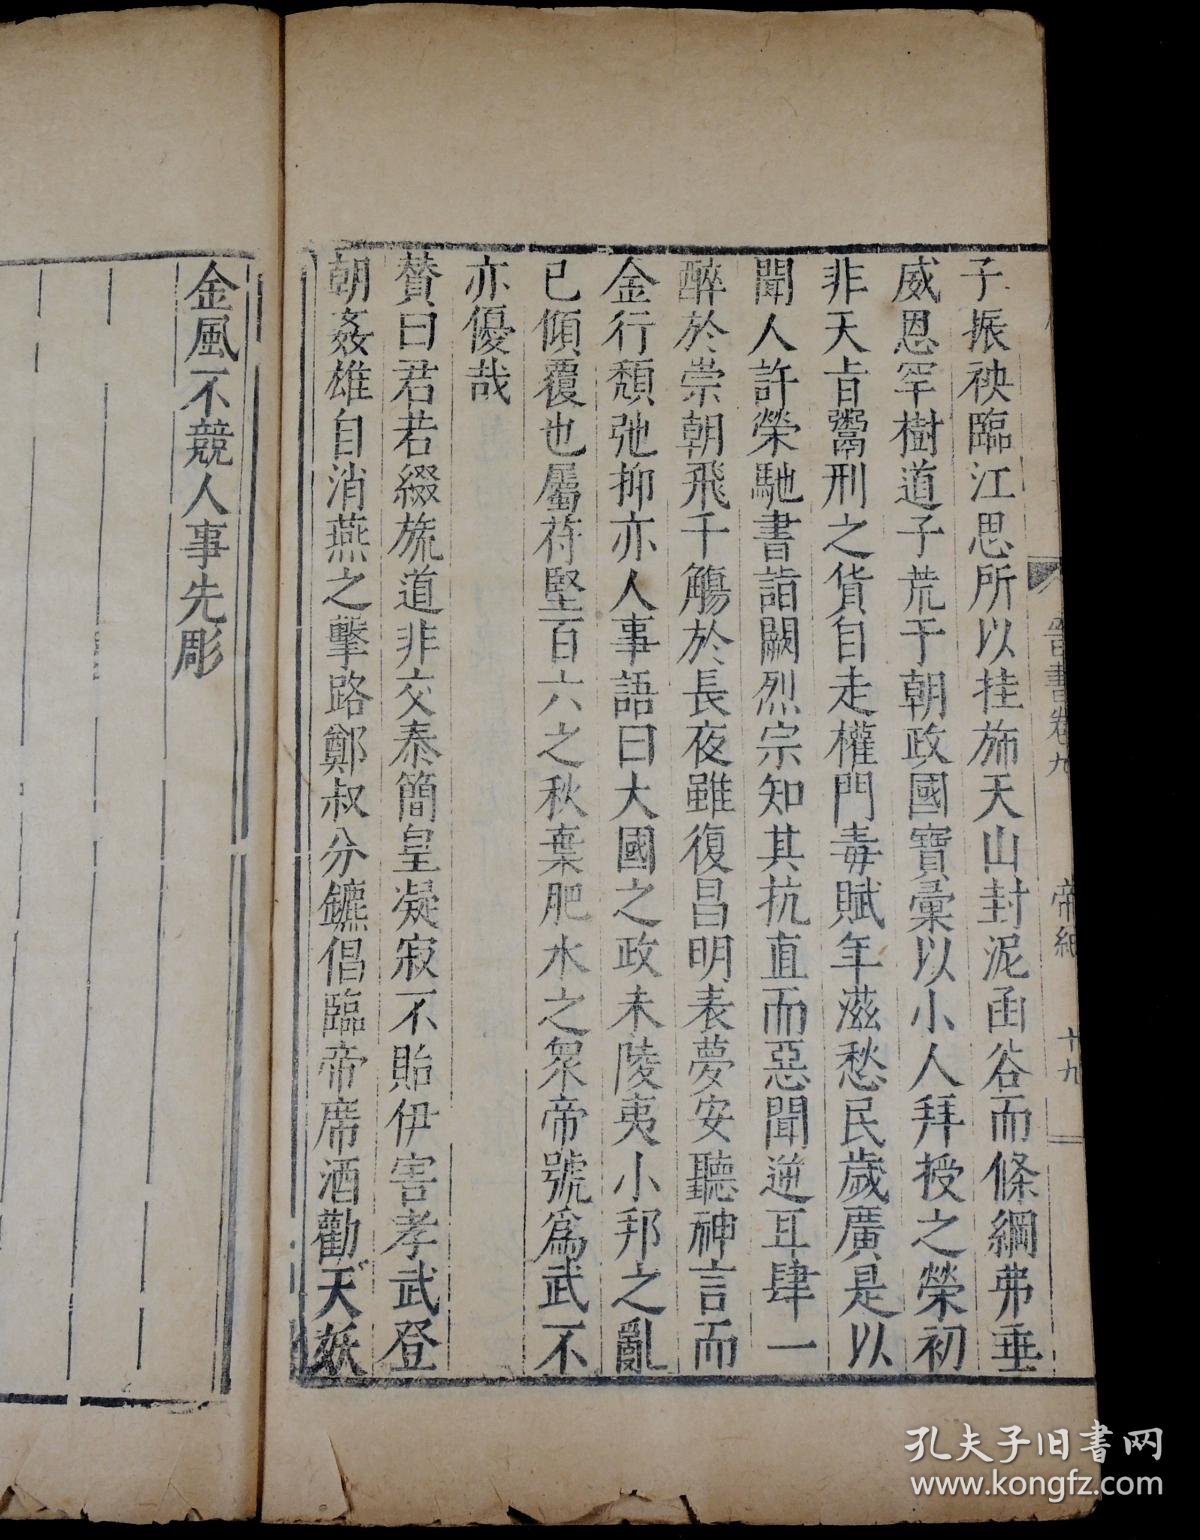 子振秧臨江思所以挂斾天山封泥函谷而條綱弗垂
威恩罕樹道子荒于朝政國寶彙以小人拜授之榮初
非天旨鬻刑之貨自走權門毒賦年滋愁民歲廣是以
聞人許榮馳書詣闕烈宗知其抗直而惡聞逆耳肆一
醉於崇朝飛千觴於長夜雖復昌明表夢安聽神言而
金行頹弛抑亦人事語曰大國之政未陵夷小邦之亂
已傾覆也屬苻堅百六之秋棄肥水之眾帝號爲武不
亦優哉
贊曰君若綴旒道非交泰簡皇凝寂不貽伊害孝武登
朝姦雄自消燕之擊路鄭叔分鑣倡臨帝席酒勸天妖
金風不競人事先彫
晉書卷九
帝紀
十九
孔夫子旧書网
www.kongfz.com